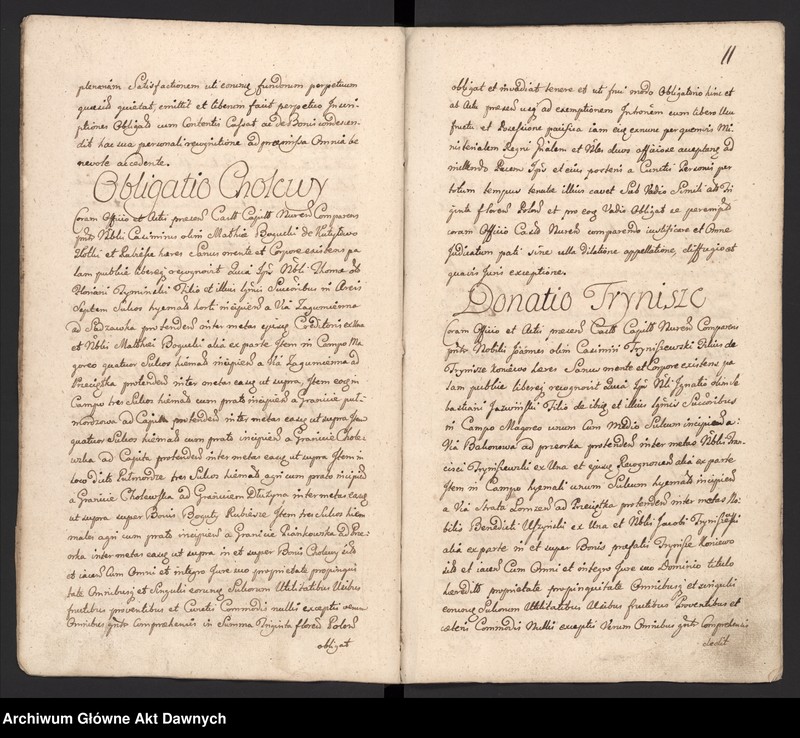 plenariam Satisfactionem uti eorunq fundorum perpetuum
quietat, emittit et liberum facit perpetuo Inscri-
ptiones Obligato cum Contentis Cassat ac de Bonis condescen-
dit hac sua personali recognitione ad præmissa Omnia be
nevole accedente.
Obligatio Cholewy
Coram Officio et Actis præsen Castr Capitl Nuren Comparens
Nobli Casimirus olim Mathiæ Bogucki de
et hæres Sanus mente et Corpore existens pa
lam publice libereq recognovit Quia Ipse Nobli Thomæ olim
Floriani Tyminski Filio et illius Ipsius Succoribus in Areis
Septem Sulcos hyemales horti incipien a Via Zagumienna
ad Sadzawka protenden inter metas ejusq Creditoris ex Una
et Nobli Matthæi Bogucki alia ex parte Item in Campo Ma
goreo quatuor Sulcos hiemales incipien a Via Zagumienna ad
protenden inter metas easq ut supra, Item eosq in
Campo tres Sulcos hiemal cum prato incipien a Granicie
ad Capita protenden inter metas easq ut supra Item
quatuor Sulcos hiemal cum prato incipien a Granicie Chole-
wska ad Capita protenden inter metas easq ut supra Item in
loco dicto tres Sulcos hiemal agri cum prato incipien
a Granicie Cholewska ad Graniciem Dłużyna inter metas easq
ut supra super Bonis Boguty Rubiesze Item tres Sulcos hiem
males agri cum prato incipien a Granicie Piankowska ad Prze-
orka inter metas easq ut supra in et super Bonis Cholewy sitis
et jacen Cum Omni et integro Jure suo proprietate propinqui
tate Omnibusq et Singulis eorunq Sulcorum Utilitatibus Usibus
fructibus proventibus et Cunctis Commodis nullis exceptis verum
Omnibus Comprehensis in Summa Triginta floren Polon
obligat
11
obligat et invadiat tenere et ut frui modo Obligatorio hinc et
ab Actu præsen usq ad exemptionem Intromem eum libere Usu
fructu et Possessione pacifica iam eisq exnunc per quemvis Mi
nisterialem Regni Gnalem et Nbles duos assignare acceptanq ad
mittendo Pacem Ipsis et eius posteris a Cunctis Personis per
totum tempus tenutæ illius cavet Sub Vadio Simili Tri
ginta floren Polon et pro eoq Vadio Obligat se peremptorie
coram Officio Castr Nuren comparendo justificare et Omne
Judicatum pati sine ulla dilatione appellatione, diffugio et
quavis Juris exceptione.
Donatio Trynisze
Coram Officio et Actis præsen Castr Capitl Nuren Comparens
Nobilis Joannes olim Casimiri Tryniszewski Filius de
Trynisze Koniewo hæres Sanus mente et Corpore existens pa
lam publice libereq recognovit Quia Ipse Nbli Ignatio olim Se
bastiani Jaźwiński Filio de ibiq et illius Ipsius Succoribus
in Campo Magoreo unum Cum Medio Sulcum incipien a
Via Bahonowa ad przeorka protenden inter metas Nobli Fran
cisci Tryniszewski ex Una et ejusq Recognoscen alia ex parte
Item in Campo hyemali unum Sulcum hyemalem incipien
a Via Strata Łomzen ad protenden inter metas No
bilis Benedicti Uszynski ex Una et Nobli Jacobi Tryniszewski
alia ex parte in et super Bonis præfatis Trynisze Koniewo
sitis et jacen Cum Omni et integro Jure suo Dominio titulo
hæreditis proprietate propinquitate Omnibusq et singulis
eorunq Sulcorum Utilitatibus Usibus fructibus Proventibus et
cæteris Commodis Nullis exceptis Verum Omnibus Comprehensis
dedit
Archiwum Główne Akt Dawnych